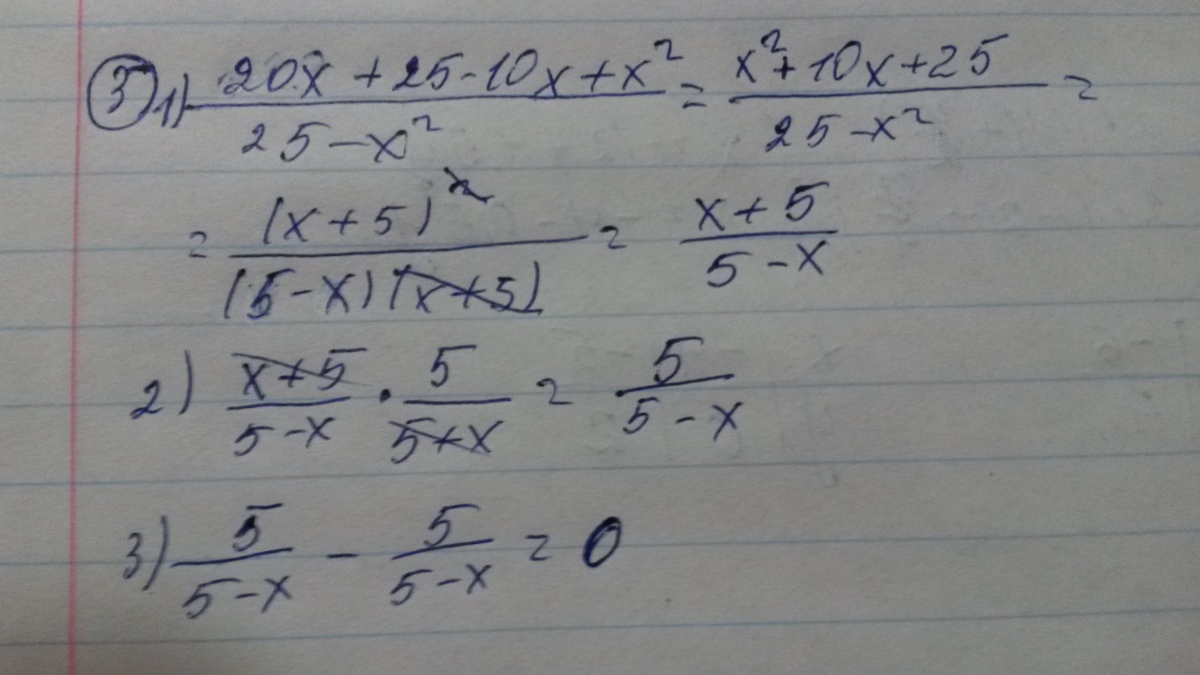 3) 1) (20x + 25 - 10x + x²)/(25 - x²) = (x² + 10x + 25)/(25 - x²) =
= (x + 5)²/((5 - x)(x + 5)) = (x + 5)/(5 - x)
2) (x + 5)/(5 - x) · 5/(5 + x) = 5/(5 - x)
3) 5/(5 - x) - 5/(5 - x) = 0